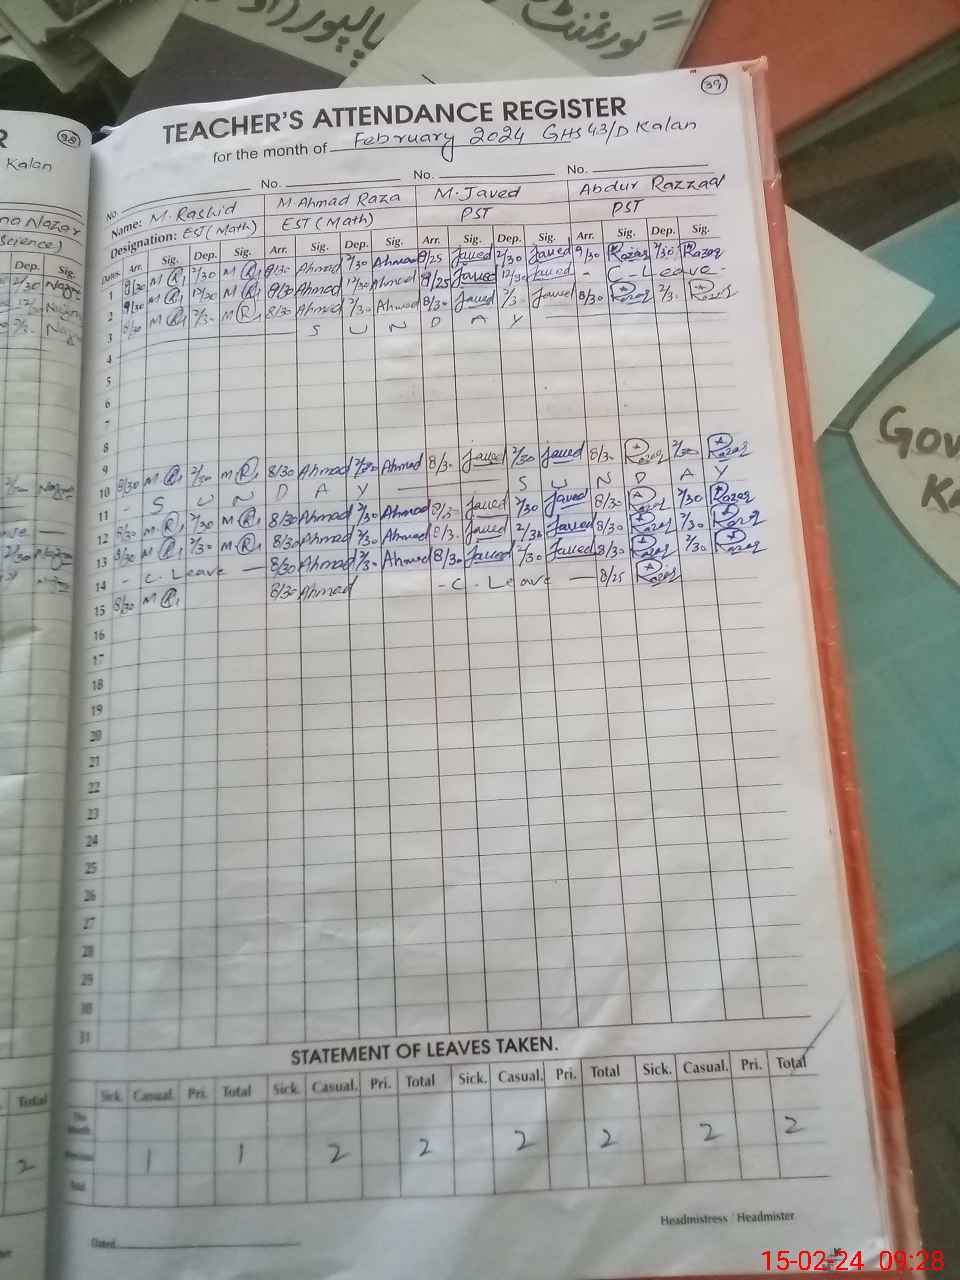 پالپور
گورنمنٹ
39
TEACHER'S ATTENDANCE REGISTER
for the month of February 2024 GHS 43/D Kalan
No. No. No. No.
Name: M. Rashid M. Ahmad Raza M. Javed Abdur Razzaq
Designation: EST (Math) EST (Math) PST PST
Dates Arr. Sig. Dep. Sig. Arr. Sig. Dep. Sig. Arr. Sig. Dep. Sig. Arr. Sig. Dep. Sig.
1 9/30 M R 2/30 M R 9/30 Ahmad 2/30 Ahmad 9/25 Javed 2/30 Javed 9/30 Razaq 2/30 Razaq
2 9/30 M R 12/30 M R 9/30 Ahmad 12/30 Ahmad 9/25 Javed 12/30 Javed - C - Leave -
3 8/30 M R 2/30 M R 8/30 Ahmad 2/30 Ahmad 8/30 Javed 2/30 Javed 8/30 Razaq 2/30 Razaq
4 S U N D A Y
5
6
7
8
9
10 8/30 M R 2/30 M R 8/30 Ahmad 2/30 Ahmad 8/30 Javed 2/30 Javed 8/30 Razaq 2/30 Razaq
11 - S U N D A Y S U N D A Y
12 8/30 M R 2/30 M R 8/30 Ahmad 2/30 Ahmad 8/30 Javed 2/30 Javed 8/30 Razaq 2/30 Razaq
13 8/30 M R 2/30 M R 8/30 Ahmad 2/30 Ahmad 8/30 Javed 2/30 Javed 8/30 Razaq 2/30 Razaq
14 - C. Leave - 8/30 Ahmad 2/30 Ahmad 8/30 Javed 2/30 Javed 8/30 Razaq 2/30 Razaq
15 8/30 M R 8/30 Ahmad - C - Leave - 8/25 Razaq
16
17
18
19
20
21
22
23
24
25
26
27
28
29
30
31
STATEMENT OF LEAVES TAKEN.
Sick. Casual. Pri. Total Sick. Casual. Pri. Total Sick. Casual. Pri. Total Sick. Casual. Pri. Total
1 1 2 2 2 2 2 2
Headmistress / Headmister
Dated
28
Kalan
Nazar
Science)
Dep. Sig.
Total
2
15-02-24 09:28